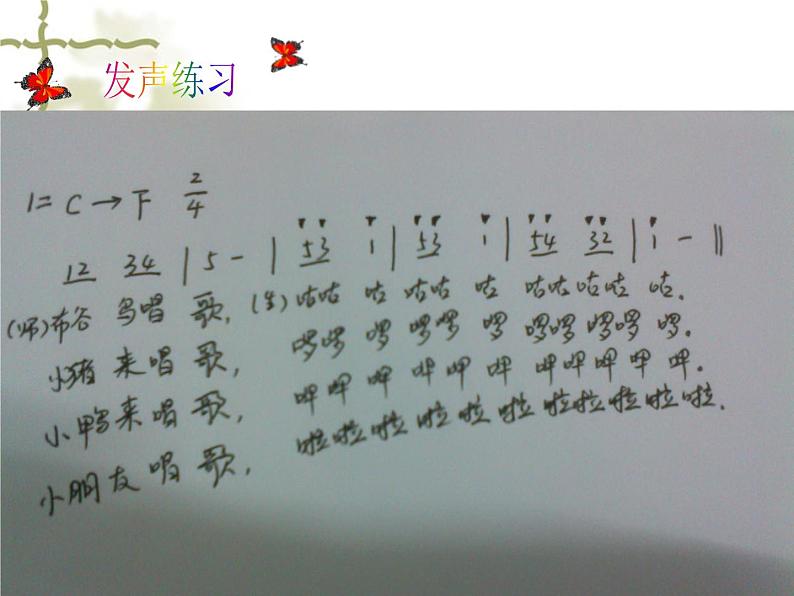 发声练习
1= C → F 2/4
12 34 | 5 - | 53 1 | 53 1 | 54 32 | 1 - ‖
(师)布谷鸟唱歌,(生)咕咕 咕 咕咕 咕 咕咕咕咕 咕.
小猪来唱歌, 啰啰 啰 啰啰 啰 啰啰 啰啰 啰.
小鸭来唱歌, 呷呷 呷 呷呷 呷 呷呷呷呷 呷.
小朋友唱歌, 啦啦啦 啦啦啦 啦啦啦啦啦.